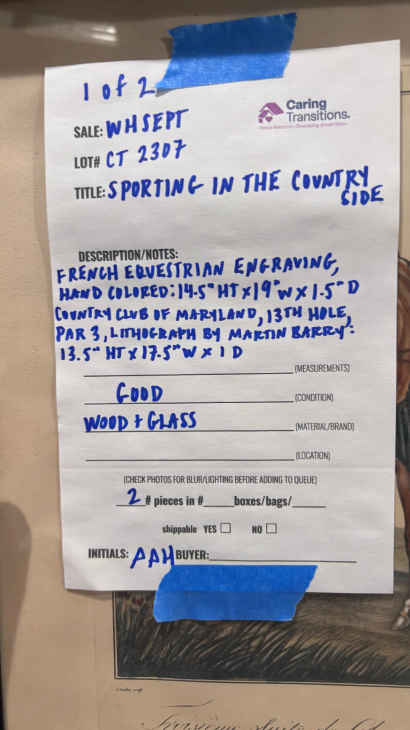 1 of 2
Caring
Transitions.
SALE: WHSEPT
LOT# CT 2307
TITLE: SPORTING IN THE COUNTRY
SIDE
DESCRIPTION/NOTES:
FRENCH EQUESTRIAN ENGRAVING,
HAND COLORED: 14.5" HT X 19" W X 1.5" D
COUNTRY CLUB OF MARYLAND, 13TH HOLE,
PAR 3, LITHOGRAPH BY MARTIN BARRY:
13.5" HT X 17.5" W X 1 D
(MEASUREMENTS)
GOOD (CONDITION)
WOOD + GLASS (MATERIAL/BRAND)
(LOCATION)
(CHECK PHOTOS FOR BLUR/LIGHTING BEFORE ADDING TO QUEUE)
2 # pieces in #_____boxes/bags/______
shippable YES NO
INITIALS: AAH BUYER: